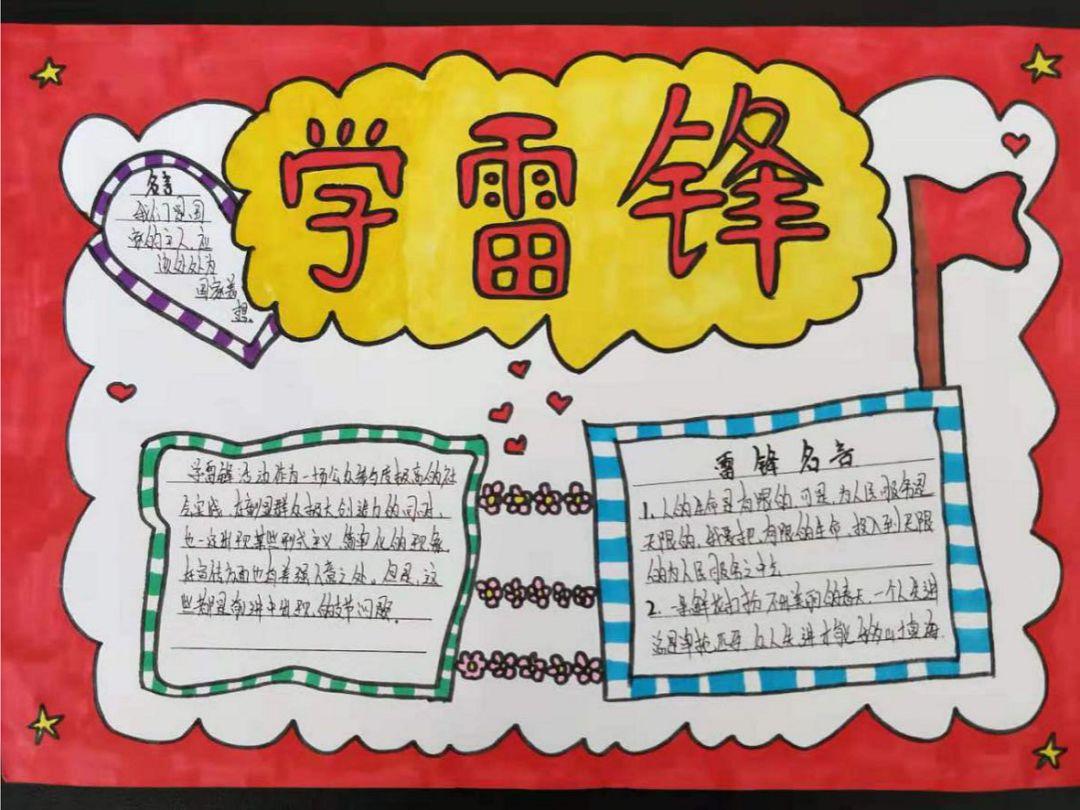 学雷锋
名言
我们是国
家的主人，应
该处处为
国家着
想。
学雷锋活动作为一场公众参与度极高的社
会实践，在彰显群众极大创造力的同时，
也一度出现某些形式主义、简单化的现象，
在宣传方面也有差强人意之处。但是，这
些都是前进中出现的支节问题。
雷锋名言
1、人的生命是有限的，可是，为人民服务是
无限的，我要把有限的生命，投入到无限
的为人民服务之中去
2、一朵鲜花打扮不出美丽的春天，一个人先进
总是单枪匹马，众人先进才能移山填海